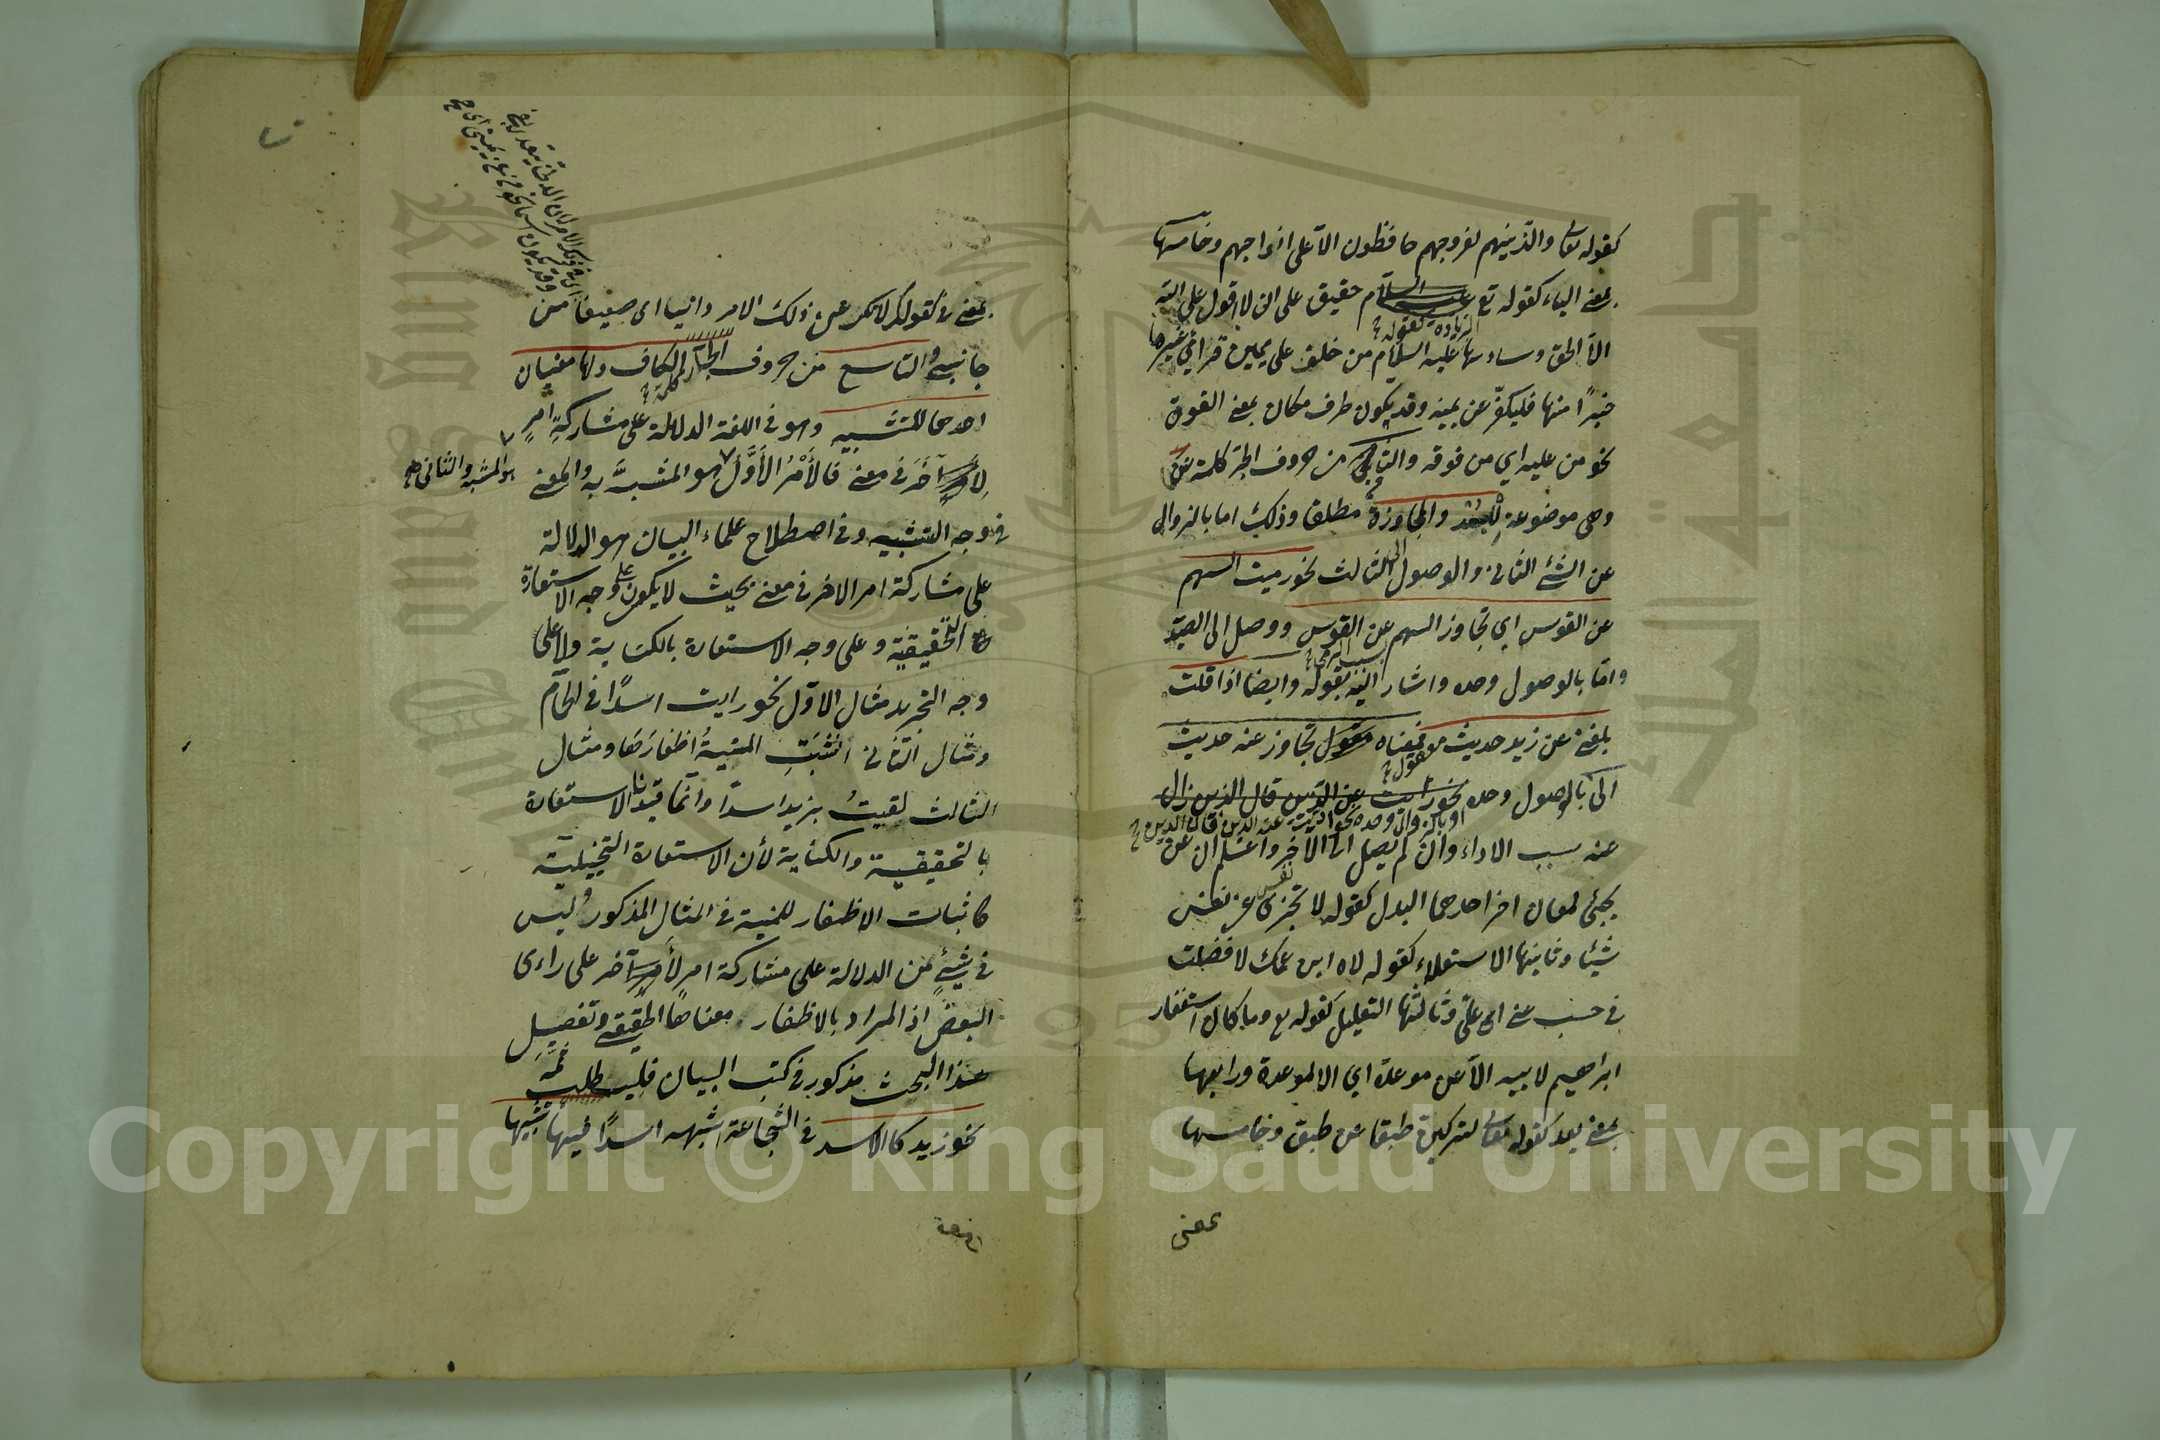 كقوله تعالى والذينهم لفروجهم حافظون الا على ازواجهم وخامسها
بمعنى الباء كقوله تع حقيق على ان لا اقول على الله
الا الحق وسادسها الزيادة كقوله عليه السلام من حلف على يمين فرأى غيرها
خيرًا منها فليكفّر عن يمينه وقد يكون ظرف مكان بمعنى الفوق
نحو من عليه اي من فوقه والثامن من حروف الجر كلمة عن
وهى موضوعة للبعد والمجاوزة مطلقا وذلك اما بالزوال
عن الشئ الثانى والوصول الى الثالث نحو رميت السهم
عن القوس اي تجاوز السهم عن القوس ووصل الى الصيد
بسبب الرمى
واما بالوصول وحده واشار اليه بقوله وايضا اذا قلت
بلغنى عن زيد حديث فمعناه تجاوز عنه حديث
منقول
الىّ بالوصول وحده
او بالزوال وحده نحو اديت عنه الدين فان الدين زال
عنه بسبب الاداء وان لم يصل الى الآخر واعلم ان عن
يجئ لمعان اخر احدها البدل كقوله لا تجزى نفس عن نفس
شيئا وثانيها الاستعلاء كقوله لاه ابن عمك لا فضلت
فى حسب عنى اى علىّ وثالثها التعليل كقوله تع وما كان استغفار
ابراهيم لابيه الا عن موعدة اي الا لموعدة ورابعها
بمعنى بعد كقوله تعالى لتركبن طبقا عن طبق وخامسها
بمعنى
بمعنى فى كقولك لا تكن عن ذلك الامر وانيا اى ضعيفا من
جانبى والتاسع من حروف الجار كلمة الكاف ولها معنيان
احدهما للتشبيه وهو فى اللغة الدلالة على مشاركةِ امرٍ
لأمرٍ آخَرَ فى معنى فالأمْرُ الأوَّلُ هو المشبَّه به والمعنى
هو المشبه والثانى
هو وجه التشبيه وفى اصطلاح علماء البيان هو الدلالة
على مشاركة امر لاخر فى معنى بحيث لا يكون على وجه الاستعارة
التحقيقية وعلى وجه الاستعارة بالكناية ولا على
وجه التجريد مثال الاوّل نحو رايت اسدًا فى الحمّام
ومثال الثانى انْشَبَتِ المنيةُ اظفارَهَا ومثال
الثالث لقيتُ بزيد اسدًا وانما قيدنا الاستعارة
بالتحقيقية والكناية لأن الاستعارة التخييلية
كاثبات الاظفار للمنية فى المثال المذكور ليس
فى شيئٍ من الدلالة على مشاركة امر لأمرٍ آخر على راءى
البعض اذ المراد بالاظفار معناها الحقيقى وتفصيل
هذا البحث مذكور فى كتب البيان فليطلب ثمّه
نحو زيد كالاسد فى الشجاعة